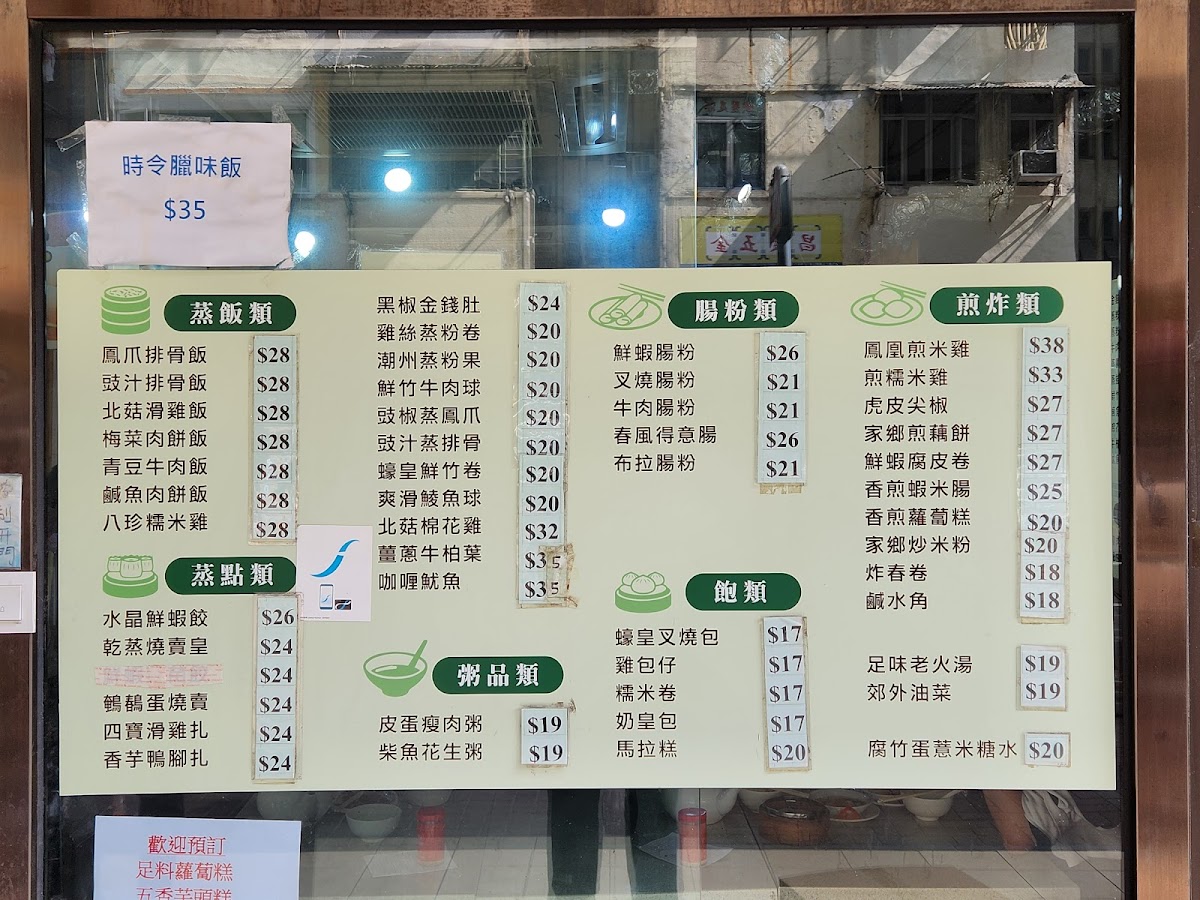 時令臘味飯
$35
蒸飯類
鳳爪排骨飯 $28
豉汁排骨飯 $28
北菇滑雞飯 $28
梅菜肉餅飯 $28
青豆牛肉飯 $28
鹹魚肉餅飯 $28
八珍糯米雞 $28
蒸點類
水晶鮮蝦餃 $26
乾蒸燒賣皇 $24
$24
鵪鶉蛋燒賣 $24
四寶滑雞扎 $24
香芋鴨腳扎 $24
黑椒金錢肚 $24
雞絲蒸粉卷 $20
潮州蒸粉果 $20
鮮竹牛肉球 $20
豉椒蒸鳳爪 $20
豉汁蒸排骨 $20
蠔皇鮮竹卷 $20
爽滑鯪魚球 $20
北菇棉花雞 $32
薑蔥牛柏葉 $35
咖喱魷魚 $35
粥品類
皮蛋瘦肉粥 $19
柴魚花生粥 $19
腸粉類
鮮蝦腸粉 $26
叉燒腸粉 $21
牛肉腸粉 $21
春風得意腸 $26
布拉腸粉 $21
飽類
蠔皇叉燒包 $17
雞包仔 $17
糯米卷 $17
奶皇包 $17
馬拉糕 $20
煎炸類
鳳凰煎米雞 $38
煎糯米雞 $33
虎皮尖椒 $27
家鄉煎藕餅 $27
鮮蝦腐皮卷 $27
香煎蝦米腸 $25
香煎蘿蔔糕 $20
家鄉炒米粉 $20
炸春卷 $18
鹹水角 $18
足味老火湯 $19
郊外油菜 $19
腐竹蛋薏米糖水 $20
歡迎預訂
足料蘿蔔糕
五香芋頭糕